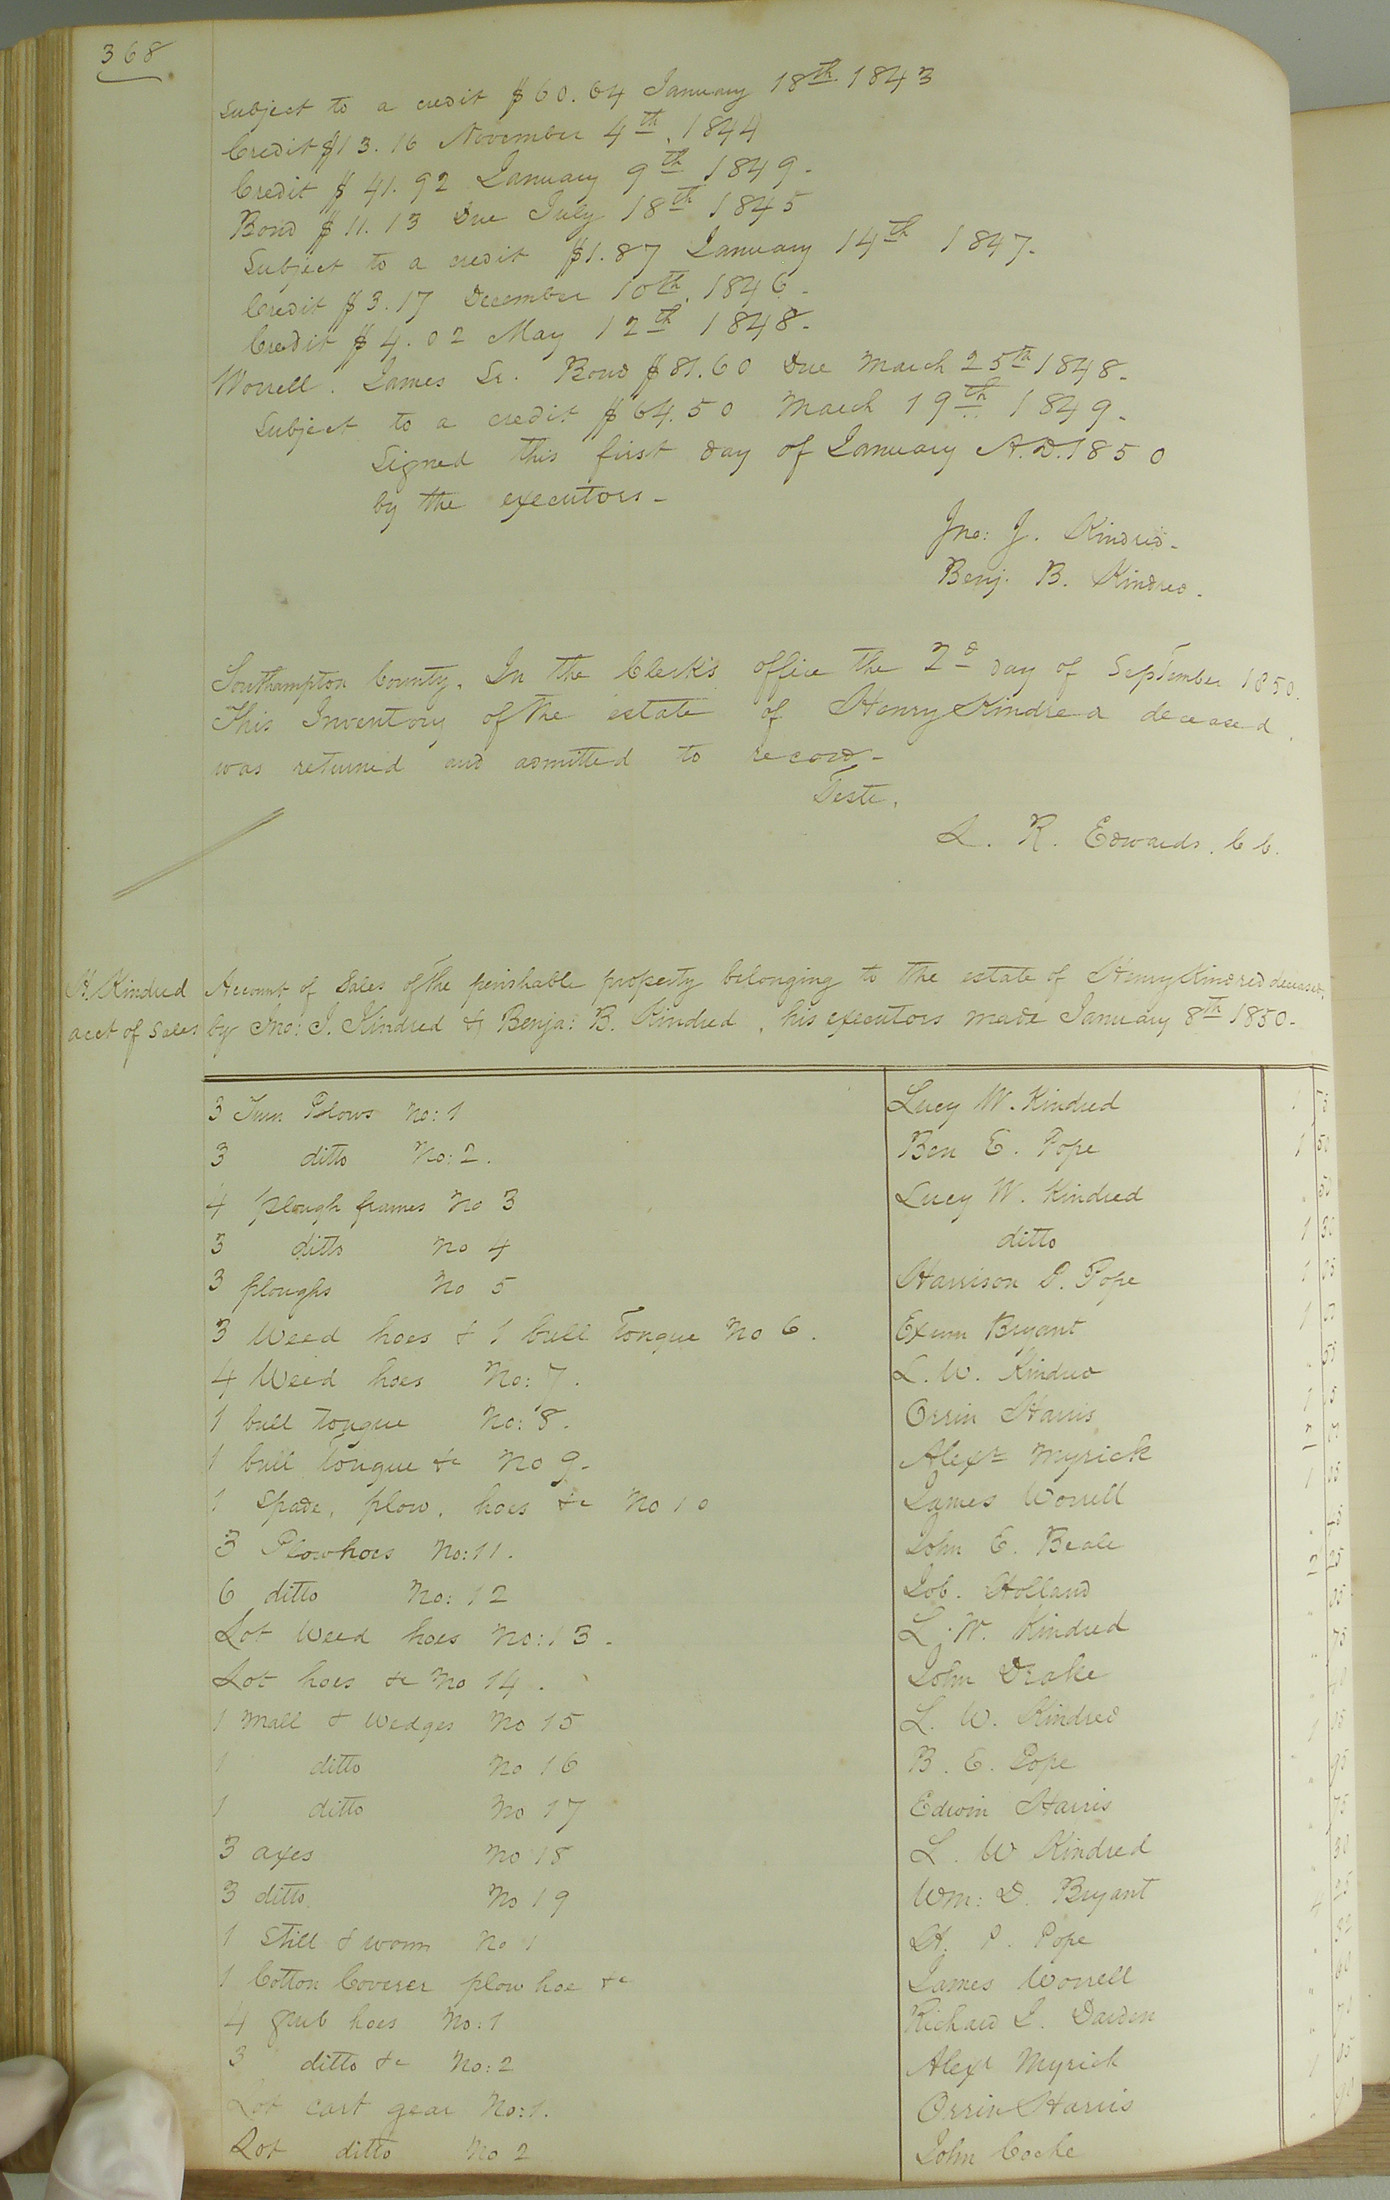 368
Subject to a credit $60.64 January 18th 1843
Credit $13.16 November 4th 1844
Credit $41.92 January 9th 1849.
Bond $11.13 Due July 18th 1845
Subject to a credit $1.87 January 14th 1847.
Credit $3.17 December 10th 1846.
Credit $4.02 May 12th 1848.
Worrell. James Sr. Bond $81.60 Due March 25th 1848.
Subject to a credit $64.50 March 19th 1849.
Signed this first day of January A.D. 1850
by the executors -
Jno: J. Kindred.
Benj. B. Kindred.
Southampton County. In the Clerk's office the 2d day of September 1850.
This Inventory of the estate of Henry Kindred deceased.
was returned and admitted to record -
Teste.
L. R. Edwards. C C.
H. Kindred
acct of Sales
Account of Sales of the perishable property belonging to the estate of Henry Kindred deceased,
by Jno: J. Kindred & Benja: B. Kindred, his executors made January 8th 1850.
3 Turn Plows No: 1 Lucy W. Kindred
3 ditto No: 2. Ben E. Pope 1 50
4 plough frames No 3 Lucy W. Kindred
3 ditto No 4 ditto 1
3 ploughs No 5 Harrison P. Pope 1
3 Weed hoes & 1 bull Tongue No 6. Exum Bryant 1
4 Weed hoes No: 7. L. W. Kindred 55
1 bull tongue No: 8. Orrin Harris
1 bull Tongue &c No 9. Alexr Myrick
1 Spade, plow, hoes &c No 10 James Worrell 1
3 Plowhoes No: 11. John E. Beale
6 ditto No: 12 Job. Holland 25
Lot Weed hoes No: 13. L. W. Kindred
Lot hoes &c No 14. John Drake 75
1 Mall & Wedges No 15 L. W. Kindred
1 ditto No 16 B. E. Pope
1 ditto No 17 Edwin Harris 95
3 axes No 18 L. W Kindred 75
3 ditto No 19 Wm: D. Bryant
1 Still & worm No 1 H. P. Pope
1 Cotton Coverer plow hoe &c James Worrell
4 grub hoes No: 1 Richard J. Darden
3 ditto &c No: 2 Alexr Myrick
Lot cart gear No: 1. Orrin Harris
Lot ditto No 2 John Cocke